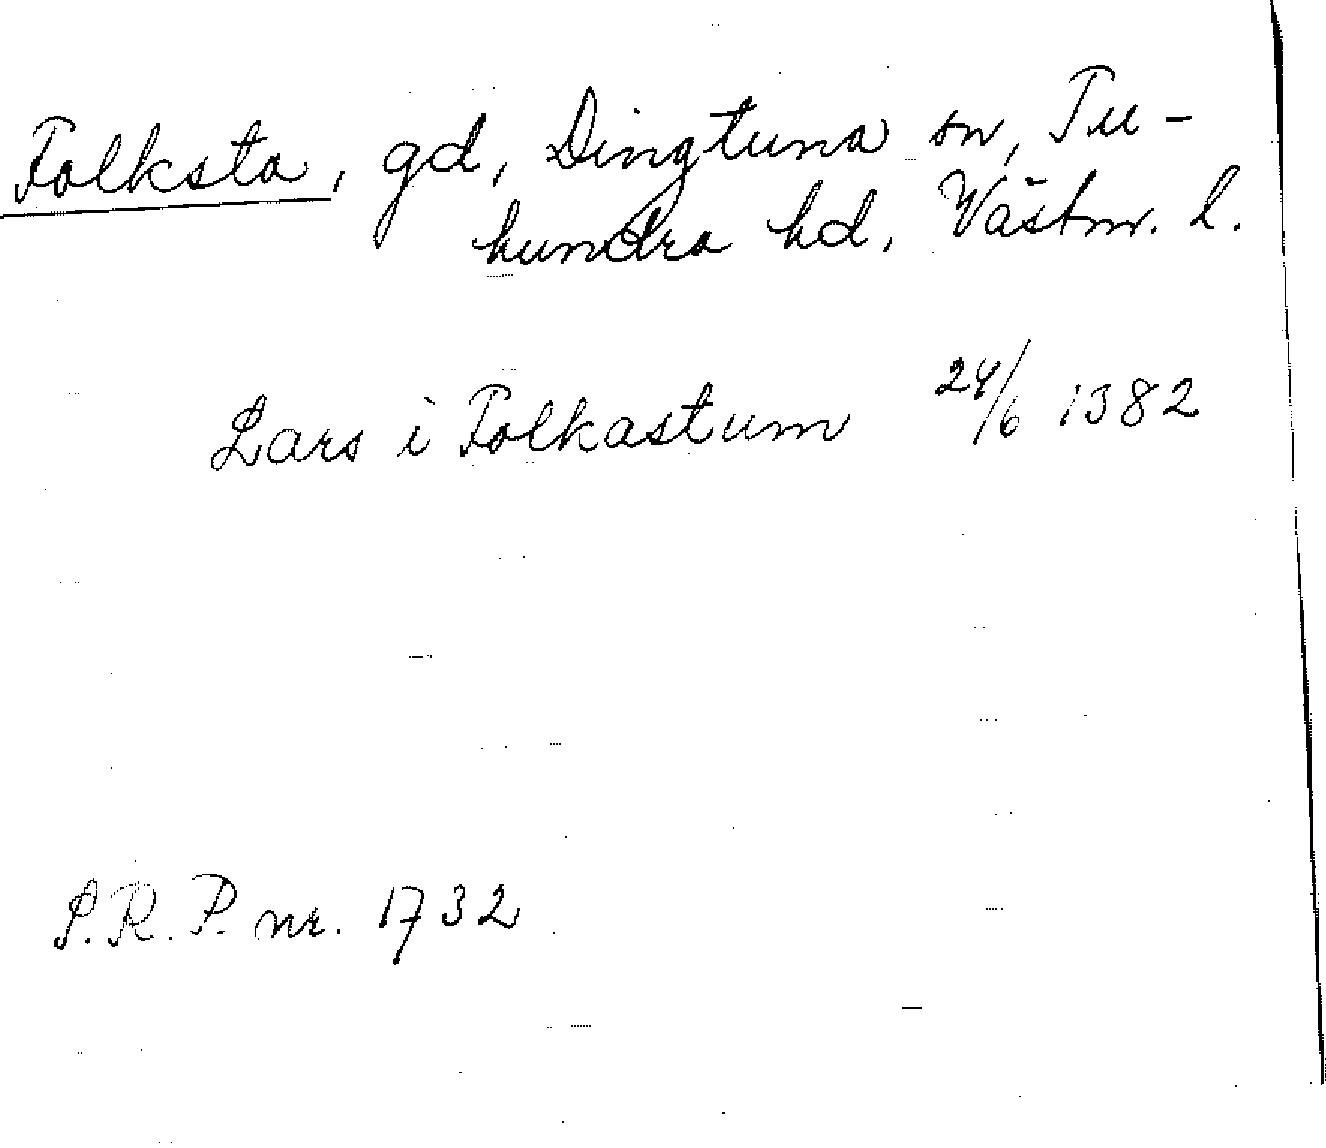 Folksta, gd, Dingtuna sn, Tu-
hundra hd, Västm. l.
Lars i Folkastum 24/6 1382
S.R.P. nr. 1732